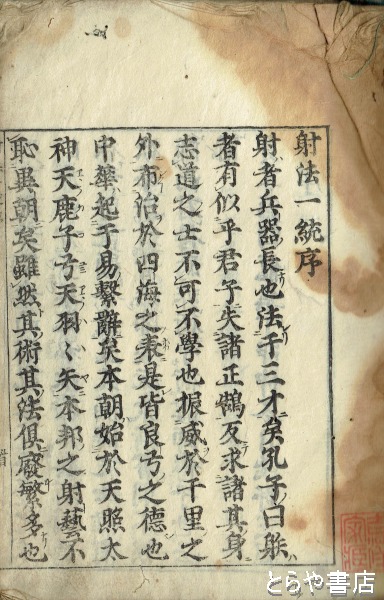 射法一統序
射者兵器長也法于三才矣孔子曰射
者有似乎君子失諸正鵠反求諸其身
志道之士不可不學也振威於千里之
外布治於四海之表是皆良弓之德也
中華起于易繫辭矣本朝始於天照太
神天鹿子弓天羽〻矢本邦之射藝不
恥異朝矣雖然其術其法俱廢繁多也
とらや書店